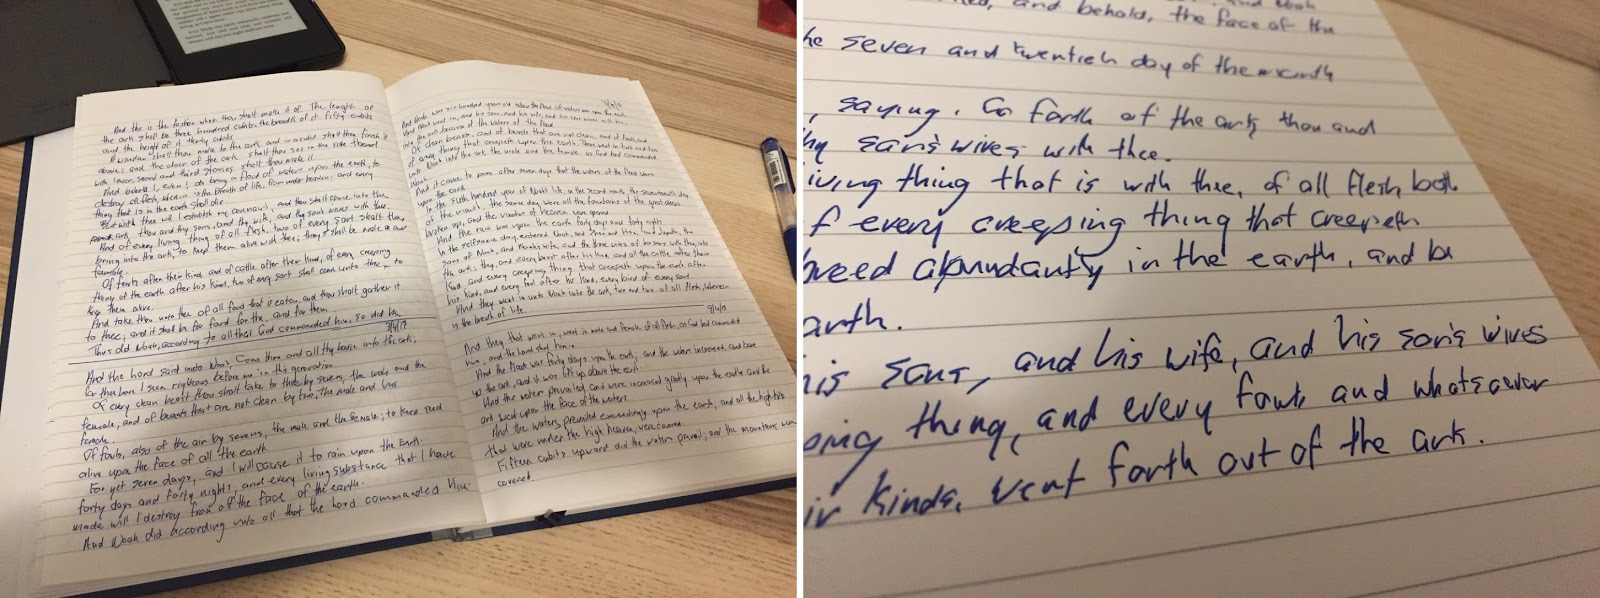 And this is the fashion when thou shalt make it of. The length of
the ark shall be three hundred cubits, the breadth of it fifty cubits
and the height of it thirty cubits.
A window shalt thou make to the ark, and in a cubit shalt thou finish it
above; and the door of the ark shalt thou set in the side thereof
with lower, second and third stories shalt thou make it.
And behold I, even I do bring a flood of waters upon the earth, to
destroy all flesh, wherein is the breath of life, from under heaven; and every
thing that is in the earth shall die.
But with thee will I establish my covenant, and thou shalt come into the
ark, thou and thy sons, and thy wife, and thy sons wives with thee.
And of every living thing of all flesh, two of every sort shalt thou
bring into the ark, to keep them alive with thee; they shall be male and
female.
Of fowls after their kind, and of cattle after their kind, of every creeping
thing of the earth after his kind, two of every sort shall come unto thee, to
keep them alive.
And take thou unto thee of all food that is eaten, and thou shalt gather it
to thee; and it shall be for food for thee, and for them.
Thus did Noah, according to all that God commanded him, so did he.
And the Lord said unto Noah, Come thou and all thy house into the ark,
for thee have I seen righteous before me in this generation
Of every clean beast thou shalt take to thee by sevens, the male and the
female, and of beasts that are not clean by two, the male and his
female.
Of fowls, also of the air by sevens, the male and the female; to keep seed
alive upon the face of all the earth.
For yet seven days, and I will cause it to rain upon the Earth
forty days and forty nights, and every living substance that I have
made will I destroy from off the face of the earth.
And Noah did according unto all that the Lord commanded him.
And Noah was six hundred years old when the flood of waters was upon the earth.
And Noah went in, and his sons, and his wife, and his sons wives with him,
into the ark because of the waters of the flood
Of clean beasts, and of beasts that are not clean, and of fowls, and
of every thing that creepeth upon the earth. There went in two and two
unto Noah into the ark the male and the female, as God had commanded
Noah.
And it came to pass after seven days that the waters of the flood were
upon the earth
In the six hundred year of Noah's life, in the second month, the seventeenth day
of the month, the same day were all the fountains of the great deep
broken up, and the windows of heaven were opened
And the rain was upon the earth forty days and forty nights
In the selfsame day entered Noah, and Shem and Ham, and Japheth, the
sons of Noah, and Noah's wife, and the three wives of his sons with them, into
the ark; they, and every beast after his kind, and all the cattle after their
kind, and every creeping thing that creepeth upon the earth after
his kind, and every fowl after his kind, every bird of every sort.
And they went in unto Noah into the ark, two and two of all flesh, wherein
is the breath of life.
And they that went in, went in male and female of all flesh, as God had commanded
him, and the Lord shut him in
And the flood was forty days upon the earth, and the waters increased, and bare
up the ark, and it was lift up above the earth.
And the waters prevailed and were increased greatly upon the earth; and the
ark went upon the face of the waters
And the waters prevailed exceedingly upon the earth, and all the high hills
that were under the high heaven, were covered
Fifteen cubits upward did the waters prevail; and the mountains were
covered.
and behold, the face of the
he seven and twentieth day of the month
, saying. Go forth of the ark thou and
hy son's wives with thee.
iving thing that is with thee, of all flesh both
f every creeping thing that creepeth
breed abundantly in the earth, and be
arth.
is sons, and his wife, and his son's wives
ping thing, and every fowl, and whatsoever
ir kinds. went forth out of the ark.